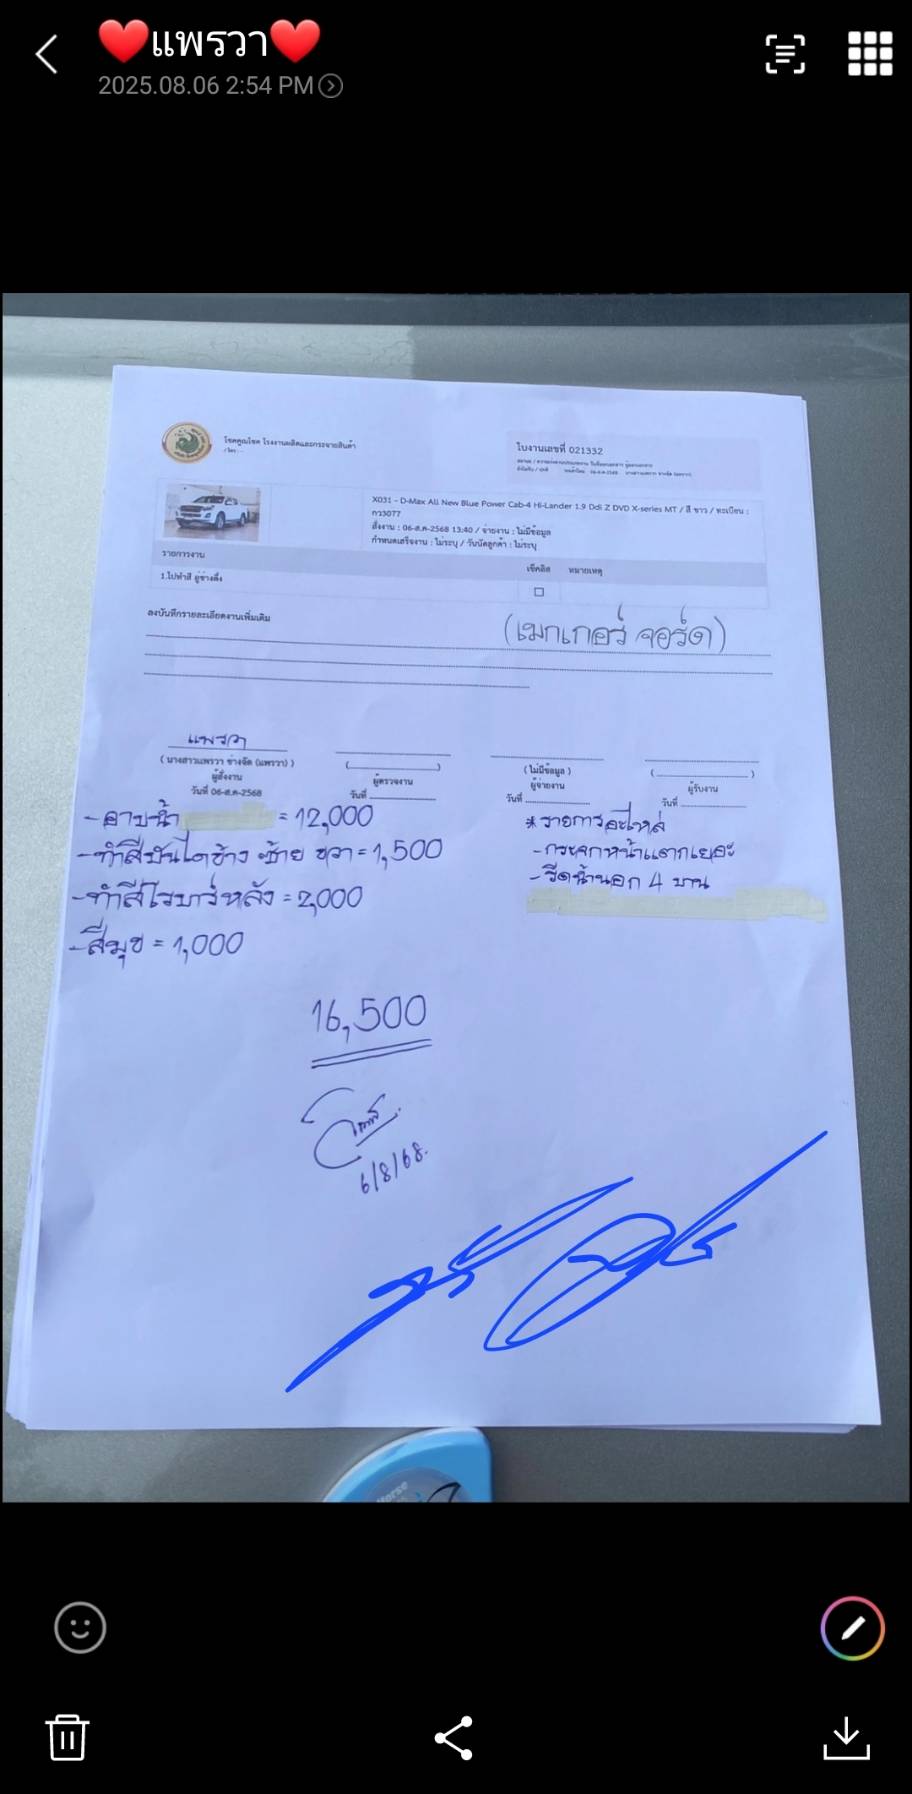 ❤️แพรวา❤️
2025.08.06 2:54 PM
โชคคูณโชค โรงงานผลิตและกระจายสินค้า
ใบงานเลขที่ 021332
X031 - D-Max All New Blue Power Cab-4 Hi-Lander 1.9 Ddi Z DVD X-series MT / สี ขาว / ทะเบียน :
กว3077
สั่งงาน : 06-ส.ค-2568 13:40 / จ่ายงาน : ไม่มีข้อมูล
กำหนดเสร็จงาน : ไม่ระบุ / วันนัดลูกค้า : ไม่ระบุ
รายการงาน เช็คลิส หมายเหตุ
1.ไปทำสี อู่ช่างตึ๋ง
ลงบันทึกรายละเอียดงานเพิ่มเติม
(เมกเกอร์ จอร์ด)
แพรวา
( นางสาวแพรวา ช่างจัด (แพรวา) )
ผู้สั่งงาน
วันที่ 06-ส.ค-2568
ผู้ตรวจงาน
วันที่
( ไม่มีข้อมูล )
ผู้จ่ายงาน
วันที่
ผู้รับงาน
วันที่
- อาบน้ำ = 12,000
- ทำสีบันไดข้าง ซ้าย ขวา = 1,500
- ทำสีโรบาร์หลัง = 2,000
- สีมุข = 1,000
* รายการอะไหล่
- กระจกหน้าแตกเยอะ
- รีดน้ำนอก 4 บาน
16,500
6/8/68.